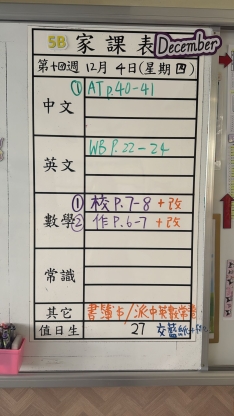 5B 家課表 December
第十四週 12月 4日(星期四)
中文 ① AT p.40-41
英文 WB P.22-24
數學 ① 校 P.7-8 +改
② 作 P.6-7 +改
常識
其它 書簿市/派中英數常
值日生 27 交藍紙